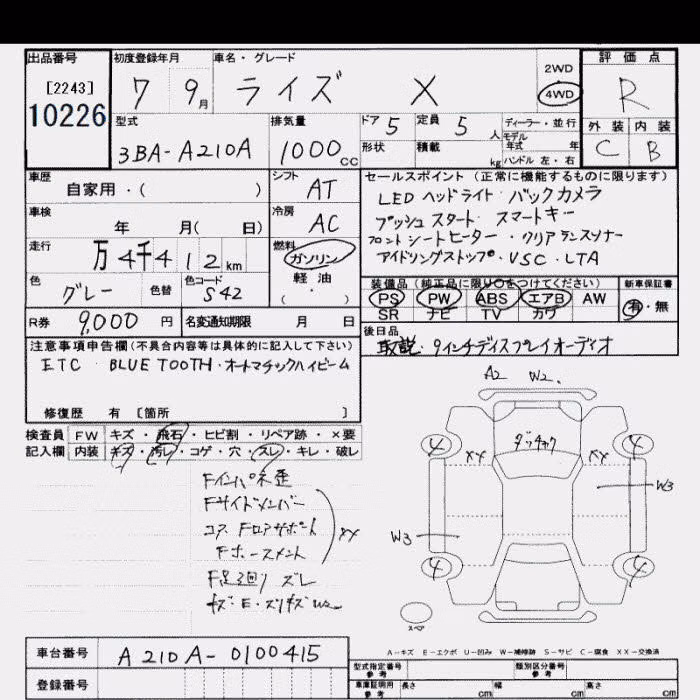 出品番号 初度登録年月 車名・グレード 評価点
[2243] 7 9月 ライズ X 2WD 4WD R
10226
型式 排気量 ドア 5 定員 5人 ディーラー・並行 外装 内装
3BA-A210A 1000cc 形状 積載 kg モデル年式 年 ハンドル 左・右 C B
車歴 シフト セールスポイント(正常に機能するものに限ります)
自家用・( ) AT LEDヘッドライト・バックカメラ
車検 冷房 プッシュスタート スマートキー
年 月( 日) AC フロントシートヒーター・クリアランスソナー
走行 燃料 アイドリングストップ・VSC・LTA
万4千412km ガソリン
色 色替 色コード 軽油 装備品(純正品に限り○をつけてください) 新車保証書
グレー S42 (・) PS PW ABS エアB AW 有・無
SR ナビ TV カワ
R券 9,000円 名変通知期限 月 日 後日品
取説・9インチディスプレイオーディオ
注意事項申告欄(不具合内容等は具体的に記入して下さい)
ETC BLUETOOTH・オートマチックハイビーム
修復歴 有 [箇所 ]
検査員 FW キズ・飛石・ヒビ割・リペア跡・×要
記入欄 内装 キズ・汚レ・コゲ・穴・スレ・キレ・破レ
A2 W2
4 XX XX 4
W3
W3
4 4
Fインパネ歪
Fサイドメンバー
コアFロアサポート XX
F足廻リ ズレ
スペア
A-キズ E-エクボ U-凹み W-補修跡 S-サビ C-腐食 XX-交換済
車台番号 A210A-0100415
登録番号
型式指定番号 参考 類別区分番号 参考
車庫証明用 参考 長さ cm 幅 cm 高さ cm